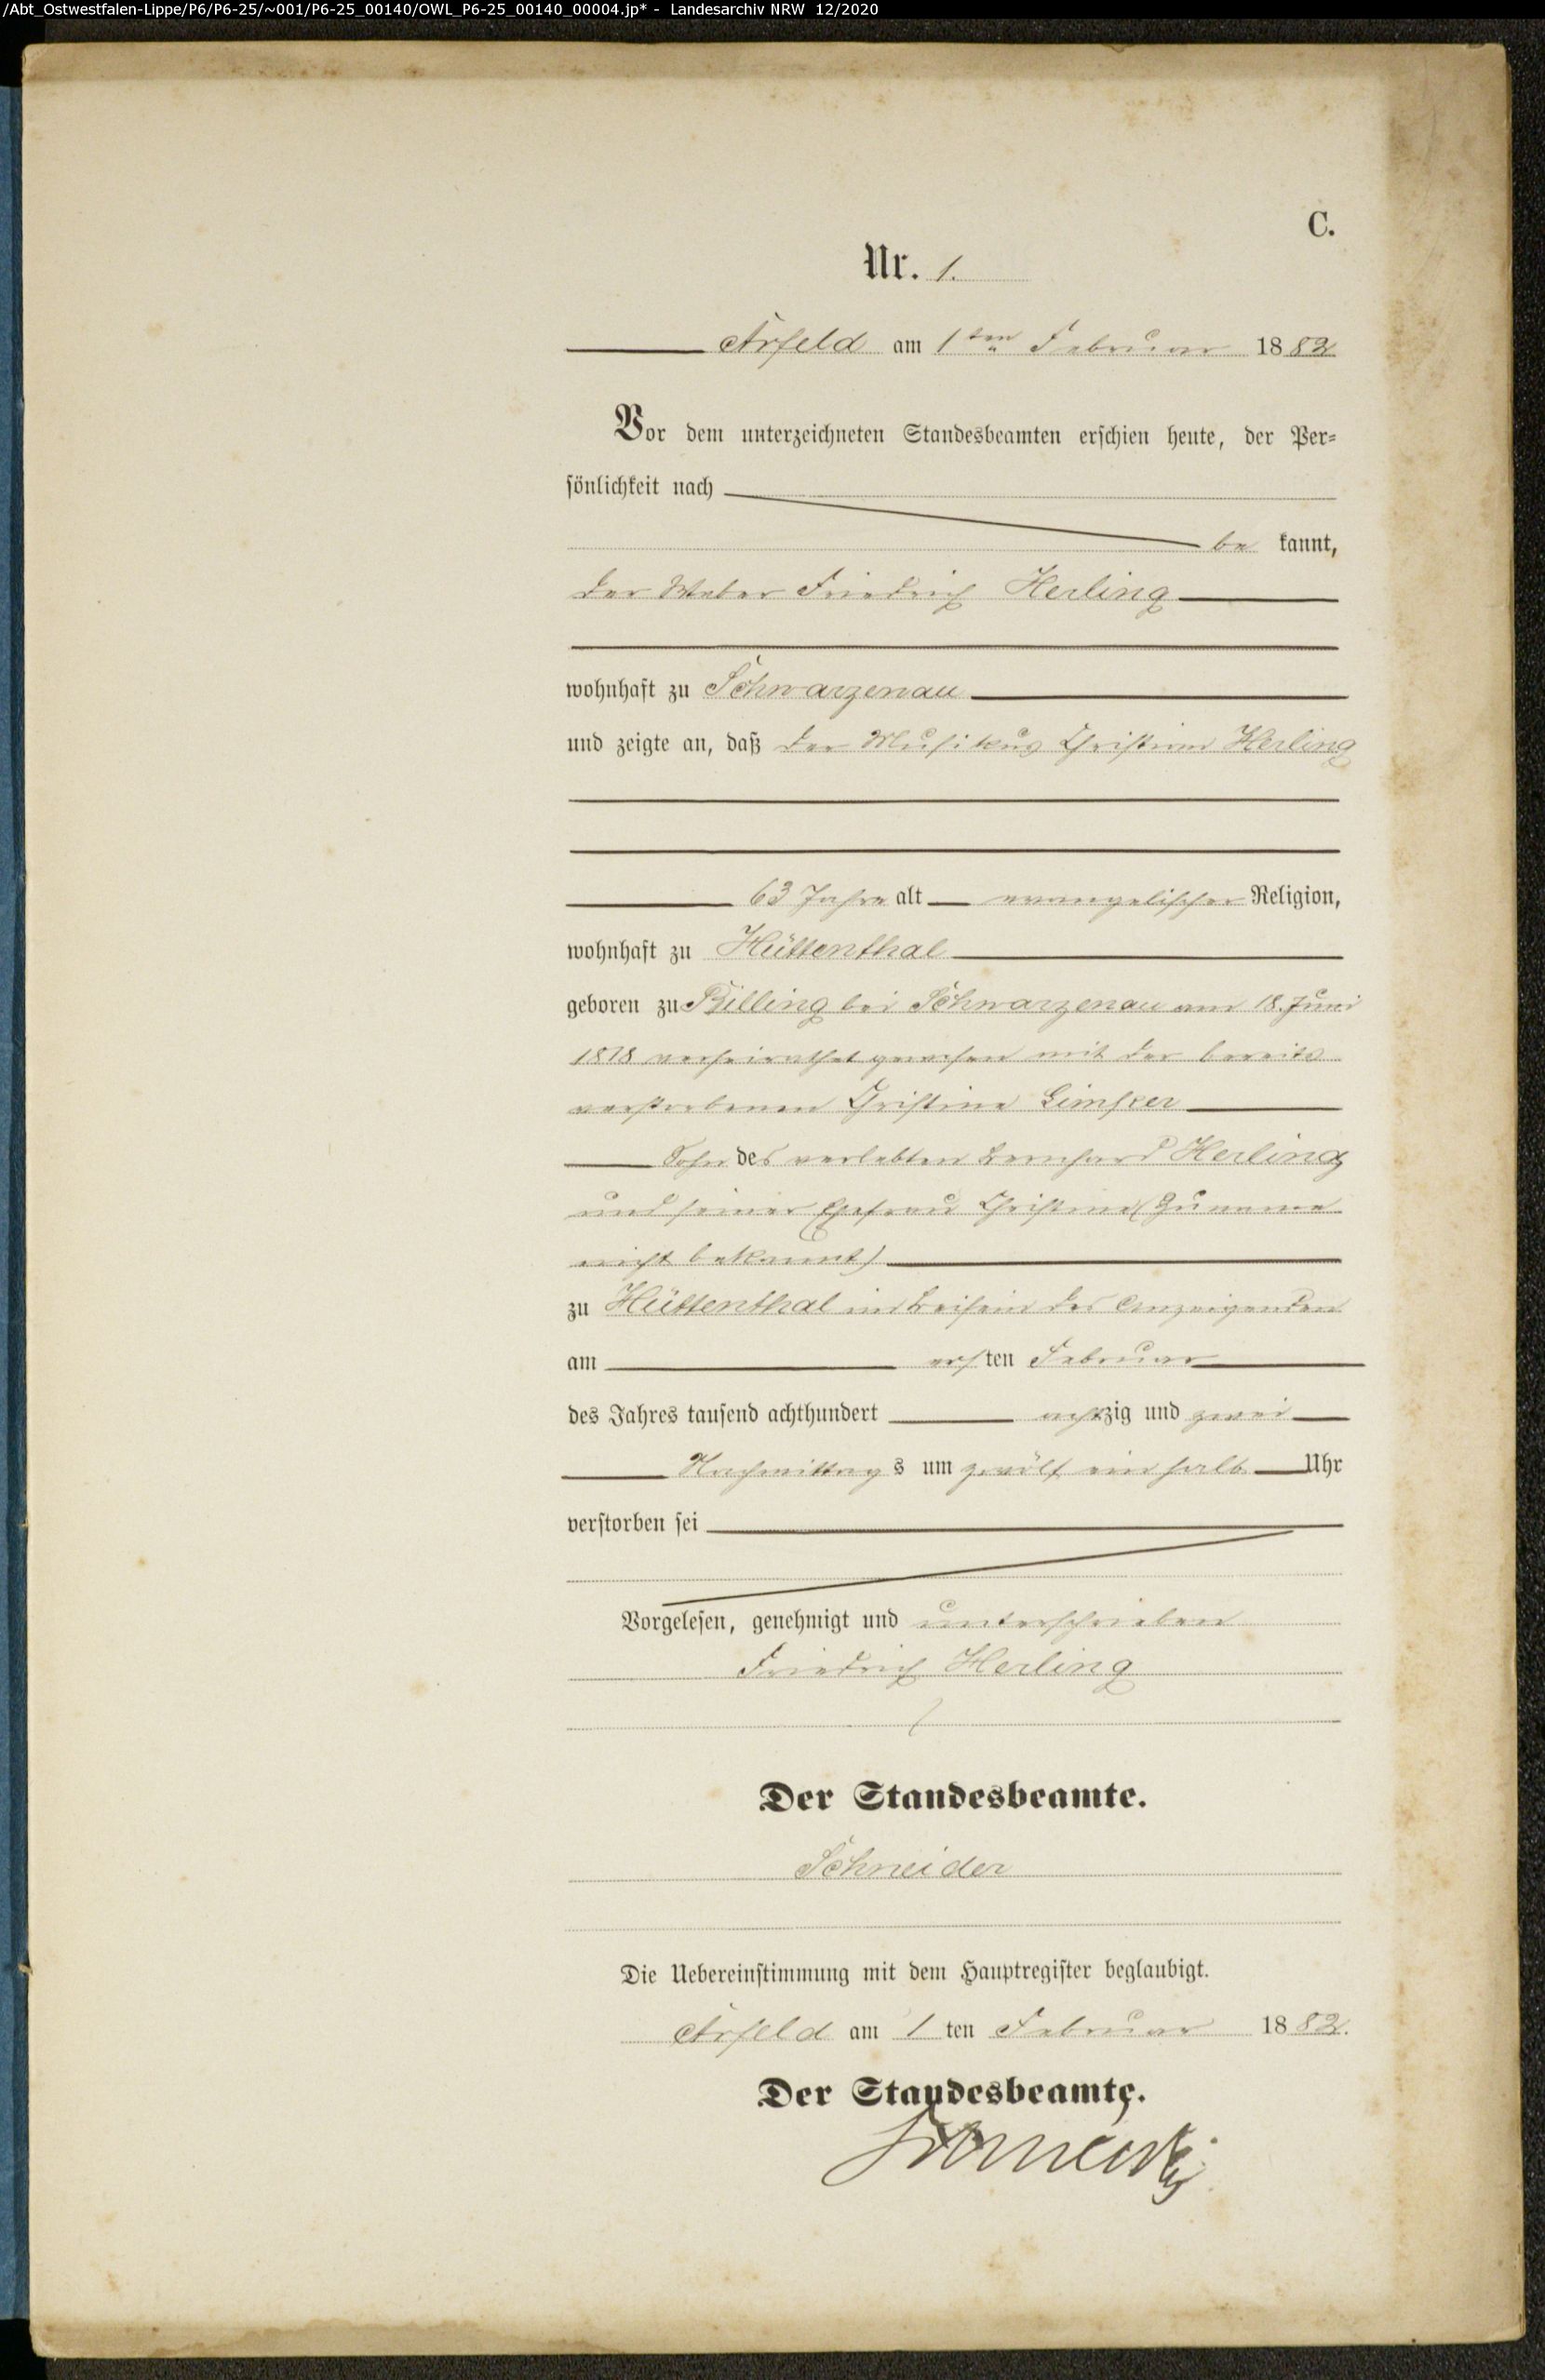 /Abt_Ostwestfalen-Lippe/P6/P6-25/~001/P6-25_00140/OWL_P6-25_00140_00004.jp* - Landesarchiv NRW 12/2020
C.
Nr. 1.
Arfeld am 1ten Februar 1882
Vor dem unterzeichneten Standesbeamten erschien heute, der Per-
sönlichkeit nach
be kannt,
der Weber Friedrich Herling
wohnhaft zu Schwarzenau
und zeigte an, daß der Musikus Christian Herling
63 Jahre alt evangelischer Religion,
wohnhaft zu Hüttenthal
geboren zu bei Schwarzenau am 18. Juni
1818 verheirathet gewesen mit der bereits
verstorbenen Christine
Sohn des verlebten Bernhard Herling
und seiner Ehefrau Christine (Zuname
nicht bekannt)
zu Hüttenthal im Beisein des Anzeigenden
am ersten Februar
des Jahres tausend achthundert achtzig und zwei
Nachmittags um zwölf ein halb Uhr
verstorben sei
Vorgelesen, genehmigt und unterschrieben
Friedrich Herling
Der Standesbeamte.
Schneider
Die Uebereinstimmung mit dem Hauptregister beglaubigt.
Arfeld am 1 ten Februar 1882.
Der Standesbeamte.